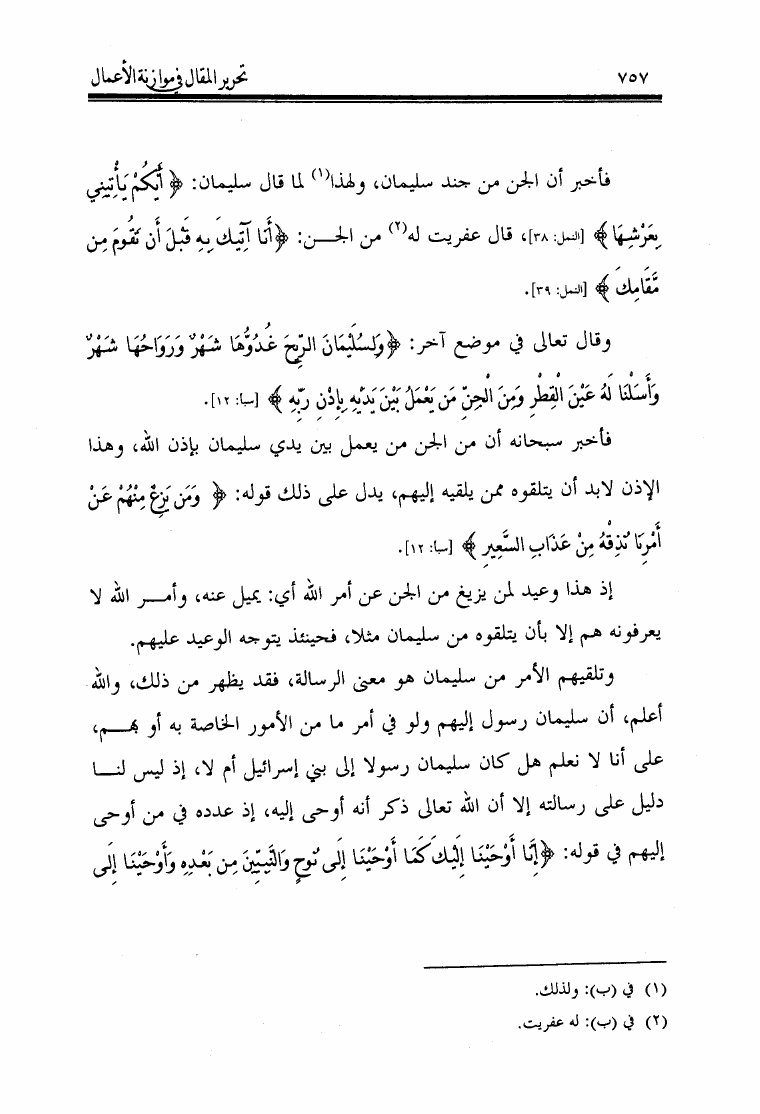 ٧٥٧ تحرير المقال في موازنة الأعمال
فأخبر أن الجن من جند سليمان، ولهذا(١) لما قال سليمان: ﴿ أَيُّكُمْ يَأْتِينِي
بِعَرْشِهَا ﴾ [النمل: ٣٨]، قال عفريت له(٢) من الجـــن: ﴿أَنَا آتِيكَ بِهِ قَبْلَ أَن تَقُومَ مِن
مَّقَامِكَ ﴾ [النمل: ٣٩].
وقال تعالى في موضع آخر: ﴿وَلِسُلَيْمَانَ الرِّيحَ غُدُوُّهَا شَهْرٌ وَرَوَاحُهَا شَهْرٌ
وَأَسَلْنَا لَهُ عَيْنَ الْقِطْرِ وَمِنَ الْجِنِّ مَن يَعْمَلُ بَيْنَ يَدَيْهِ بِإِذْنِ رَبِّهِ ﴾ [سبأ: ١٢].
فأخبر سبحانه أن من الجن من يعمل بين يدي سليمان بإذن الله، وهذا
الإذن لابد أن يتلقوه ممن يلقيه إليهم، يدل على ذلك قوله: ﴿ وَمَن يَزِغْ مِنْهُمْ عَنْ
أَمْرِنَا نُذِقْهُ مِنْ عَذَابِ السَّعِيرِ ﴾ [سبأ: ١٢].
إذ هذا وعيد لمن يزيغ من الجن عن أمر الله أي: يميل عنه، وأمـــر الله لا
يعرفونه هم إلا بأن يتلقوه من سليمان مثلا، فحينئذ يتوجه الوعيد عليهم.
وتلقيهم الأمر من سليمان هو معنى الرسالة، فقد يظهر من ذلك، والله
أعلم، أن سليمان رسول إليهم ولو في أمر ما من الأمور الخاصة به أو بهـــم،
على أنا لا نعلم هل كان سليمان رسولا إلى بني إسرائيل أم لا، إذ ليس لنـــا
دليل على رسالته إلا أن الله تعالى ذكر أنه أوحى إليه، إذ عدده في من أوحى
إليهم في قوله: ﴿إِنَّا أَوْحَيْنَا إِلَيْكَ كَمَا أَوْحَيْنَا إِلَى نُوحٍ وَالنَّبِيِّينَ مِن بَعْدِهِ وَأَوْحَيْنَا إِلَى
(١) في (ب): ولذلك.
(٢) في (ب): له عفريت.